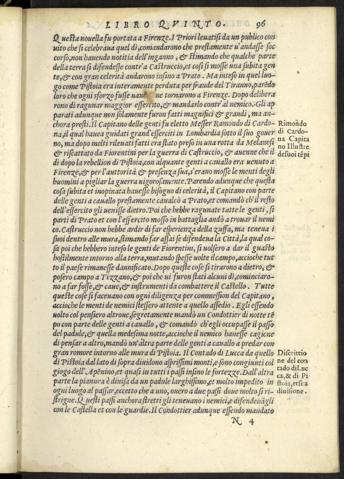 LIBRO QVINTO. 96
Questa nouella fu portata a Firenze. I Priori leuatisi da un publico con
uito che si celebraua quel dì, comandarono che prestamente u'andasse soc
corso, non hauendo notitia dell'inganno, & stimando che qualche parte
della terra si difendesse contr'a Castruccio, et così si mosse una subita gen
te, & con gran celerità andarono insino a Prato. Ma inteso in quel luo-
go come Pistoia era interamente perduta per fraude del Tiranno, parêdo
loro che ogni sforzo fusse uano se ne tornarono a Firenze. Dopo delibera
rono di ragunar maggior essercito, & mandarlo contr'al nemico. Gli ap
parati adunque non solamente furono fatti magnifici & grandi, ma an-
chora presti. Il Capitano delle genti fu eletto ad esser Raimondo di Cardo
na, il qual haueua guidati grand'esserciti in Lombardia sotto il suo gouer
no, ma dopo molti rileuati fatti era stato preso in una rotta da Melanesi
& riscattato da Fiorentini per la guerra di Castruccio, & auenne che il
dì dopo la rebellion di Pistoia, con alquante genti a cauallo era uenuto a
Firenze, & per l'auttorità & presenza sua, s'erano mosse le menti degli
huomini a pigliar la guerra uigorosamente. Parendo adunque che questa
cosa subita et inopinata hauesse bisogno di celerità, il Capitano con parte
delle genti a cauallo prestamente caualcò a Prato, et comandò ch'il resto
dell'essercito gli uenisse dietro. Poi che hebbe ragunate tutte le genti, si
partì di Prato et con l'essercito mosso in battaglia andò a trouar il nemi
co. Castruccion non hebbe ardir di far esperienza della zuffa, ma teneua i
suoi dentro alle mura, stimando far assai se difendeua la Città, la qual co-
sa poi che hebbero inteso le genti de Fiorentini, si uolsero a dar il guasto
hostilmente intorno alla terra, mutando spesse uolte il campo, accioche tut
to il paese rimanesse dannificato. Dopo queste cose si tirarono a dietro, &
posero campo a Tizzano, & poi che ui furon stati alcuni dì, cominciaro-
no a far fosse, & caue, & instrumenti da combattere il Castello. Tutte
queste cose si faceuano con ogni diligenza per commession del Capitano,
accioche le menti de nemici stessero attente a quello assedio. Egli essendo
molto col pensiero altroue, segretamente mandò un Condottier di notte tê
po con parte delle genti a cauallo, & comandò ch'egli occupasse il passo
del padule, & quella medesima notte, accioche il nemico hauesse cagion
di pensar a altro, mandò un'altra parte delle genti a cauallo a predar con
gran romore intorno alle mura di Pistoia. Il Contado di Lucca da quello
di Pistoia dal lato di sopra diuidono asprissimi monti, e sono congiunti col
giogo dell'Apenino, et quasi in tutti i passi insino le fortezze. Dall'altra
parte la pianura è diuisa da un padule larghissimo, et molto impedito in
ogni luogo al passar, eccetto che a uno, ouero a due passi doue molto si ri-
strigne. Questi passi anchora stretti gli teneuano i nemici, e difendeuãgli
con le Castella et con le guardie. Il Condottier adunque essendo mandato
N 4
Rimondo
di Cardo-
na Capita
no Illustre
de suoi tépi
Discrittio
ne del con
tado di Luc
ca, & di Pi
stoia, et sua
diuisione.